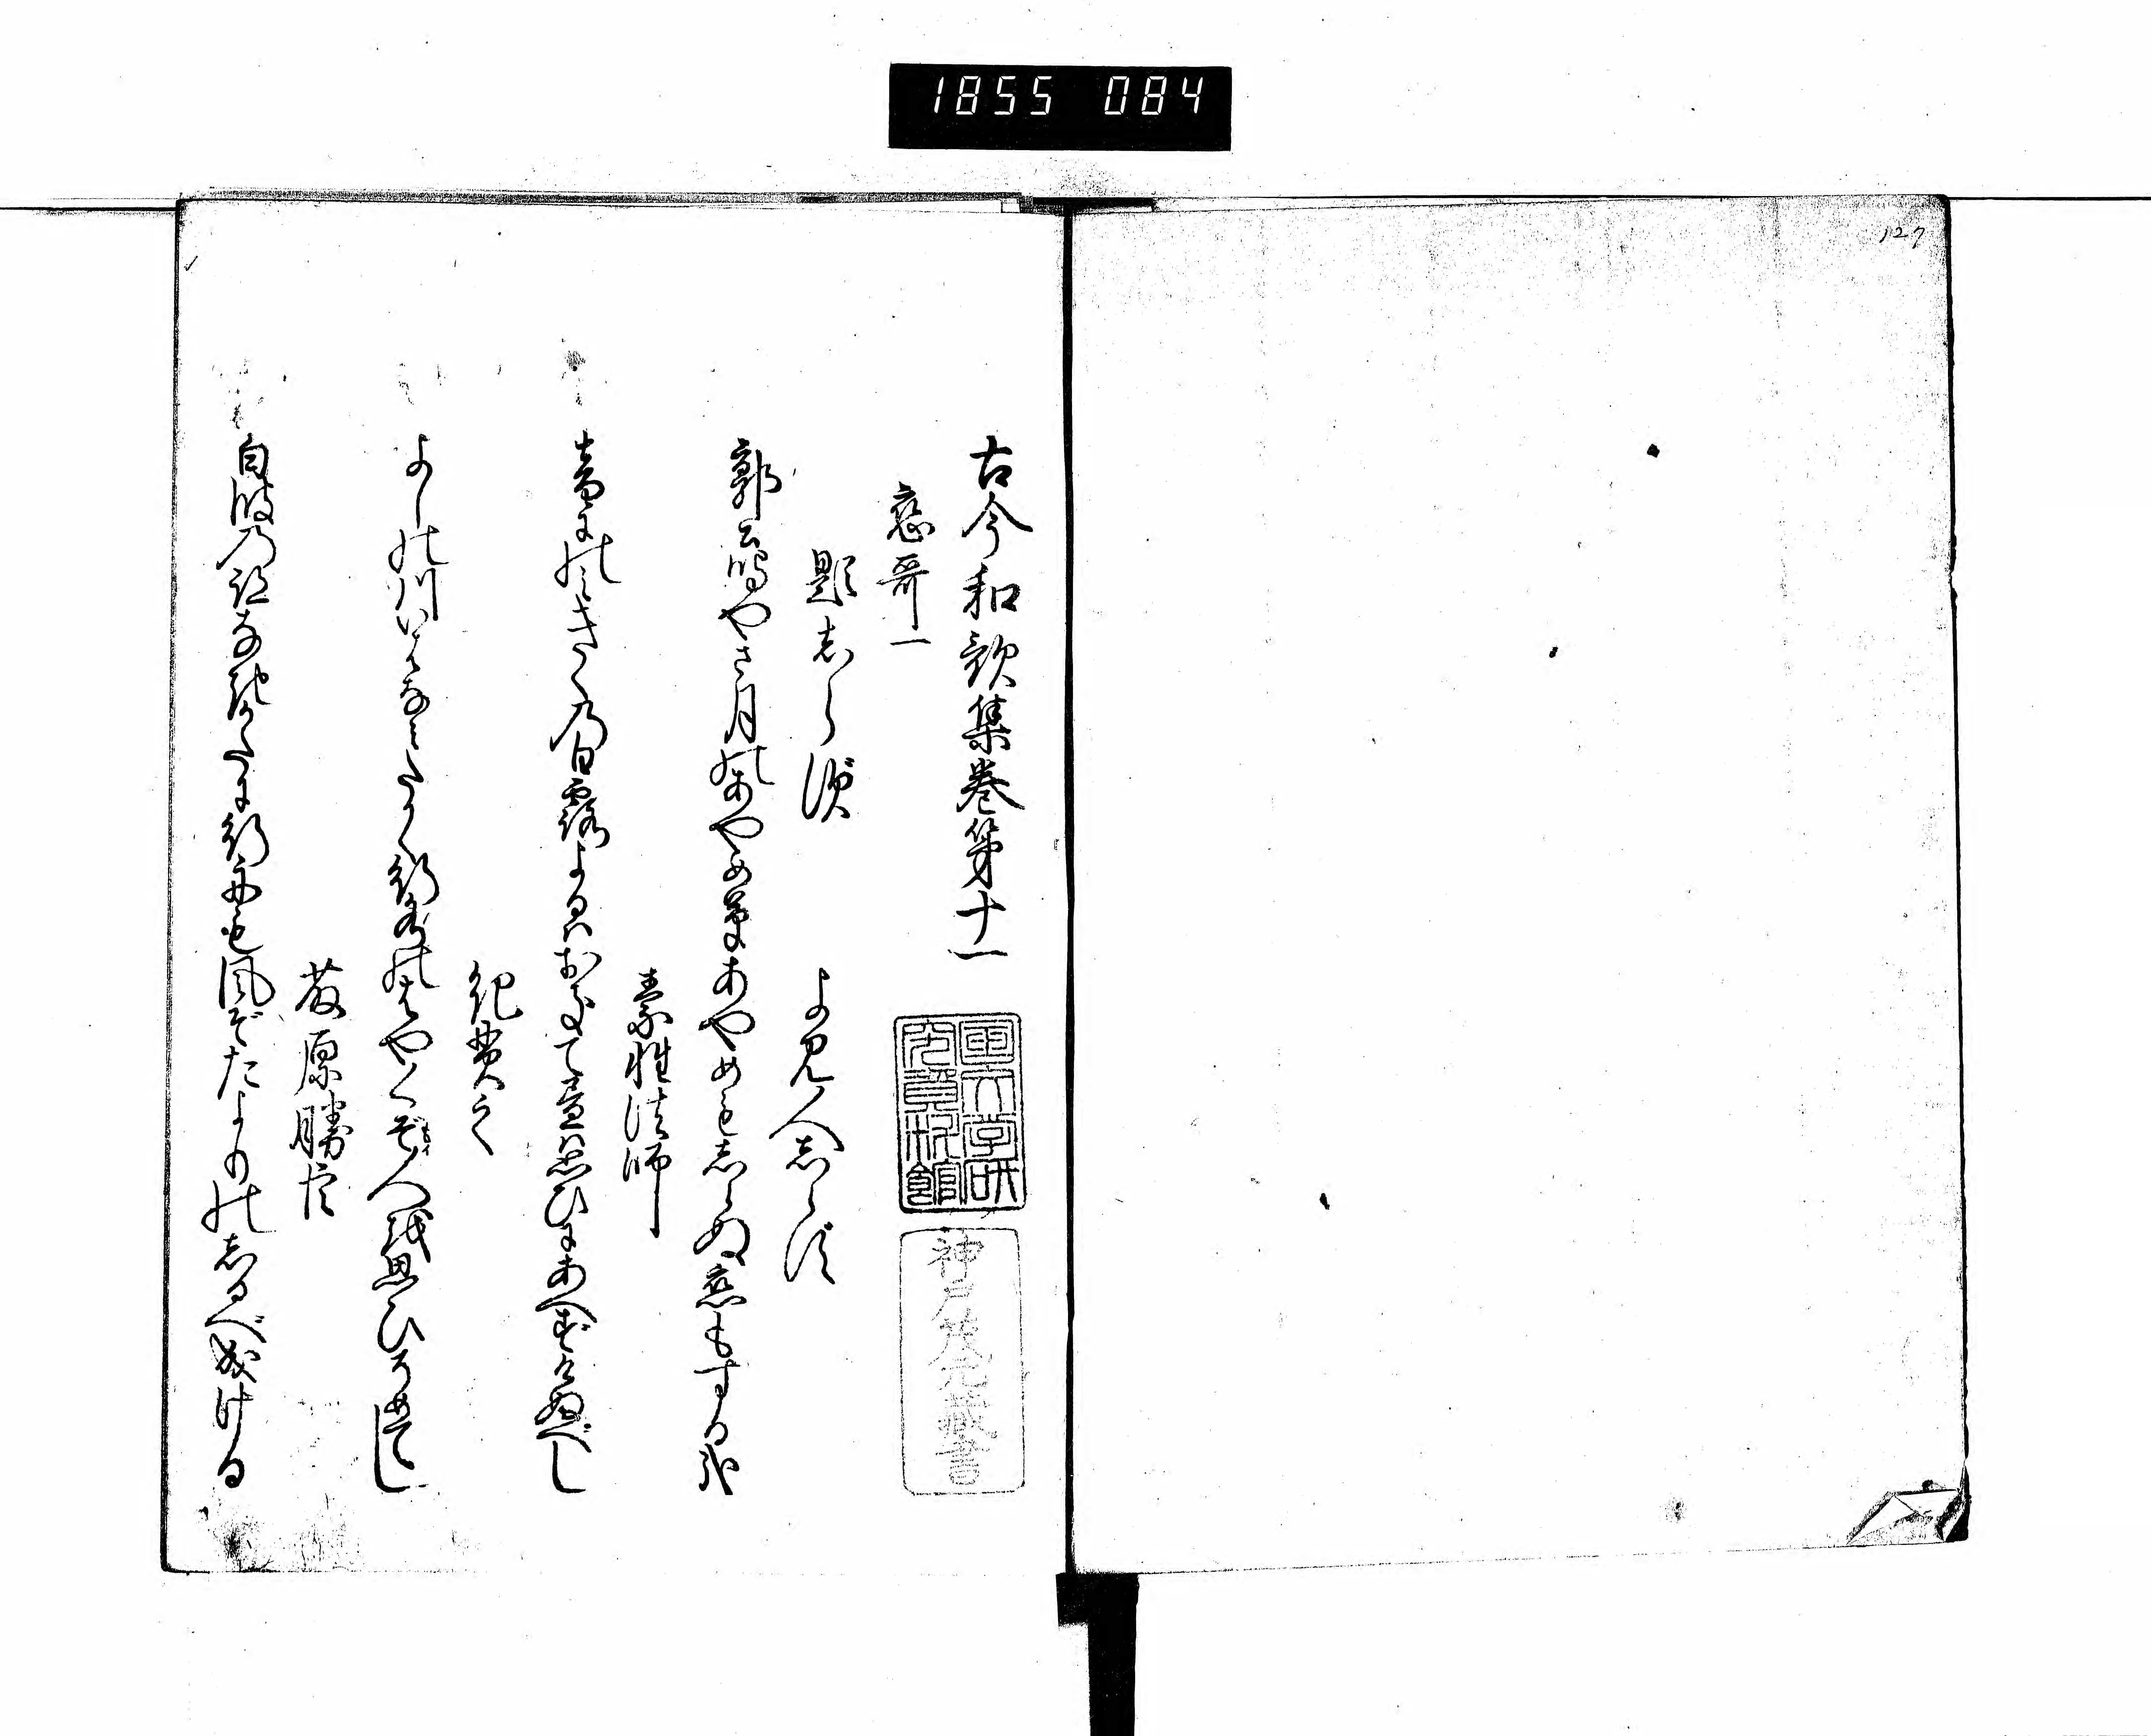 1855 084
127
古今和歌集巻第十一
恋哥一
題志らず
よみ人志らず
郭公鳴やさ月のあやめ草あやめも志らぬ恋もする哉
素性法師
音にのみきくの白露よるはおきて昼は思ひにあへずけぬべし
紀貫之
よしの川いはなみたかく行水のはやくぞ人を思ひそめてし
藤原勝臣
白波の跡なきかたに行舟も風ぞたよりの志るべ成ける
国文学研
究資料館
神戸茂元蔵書